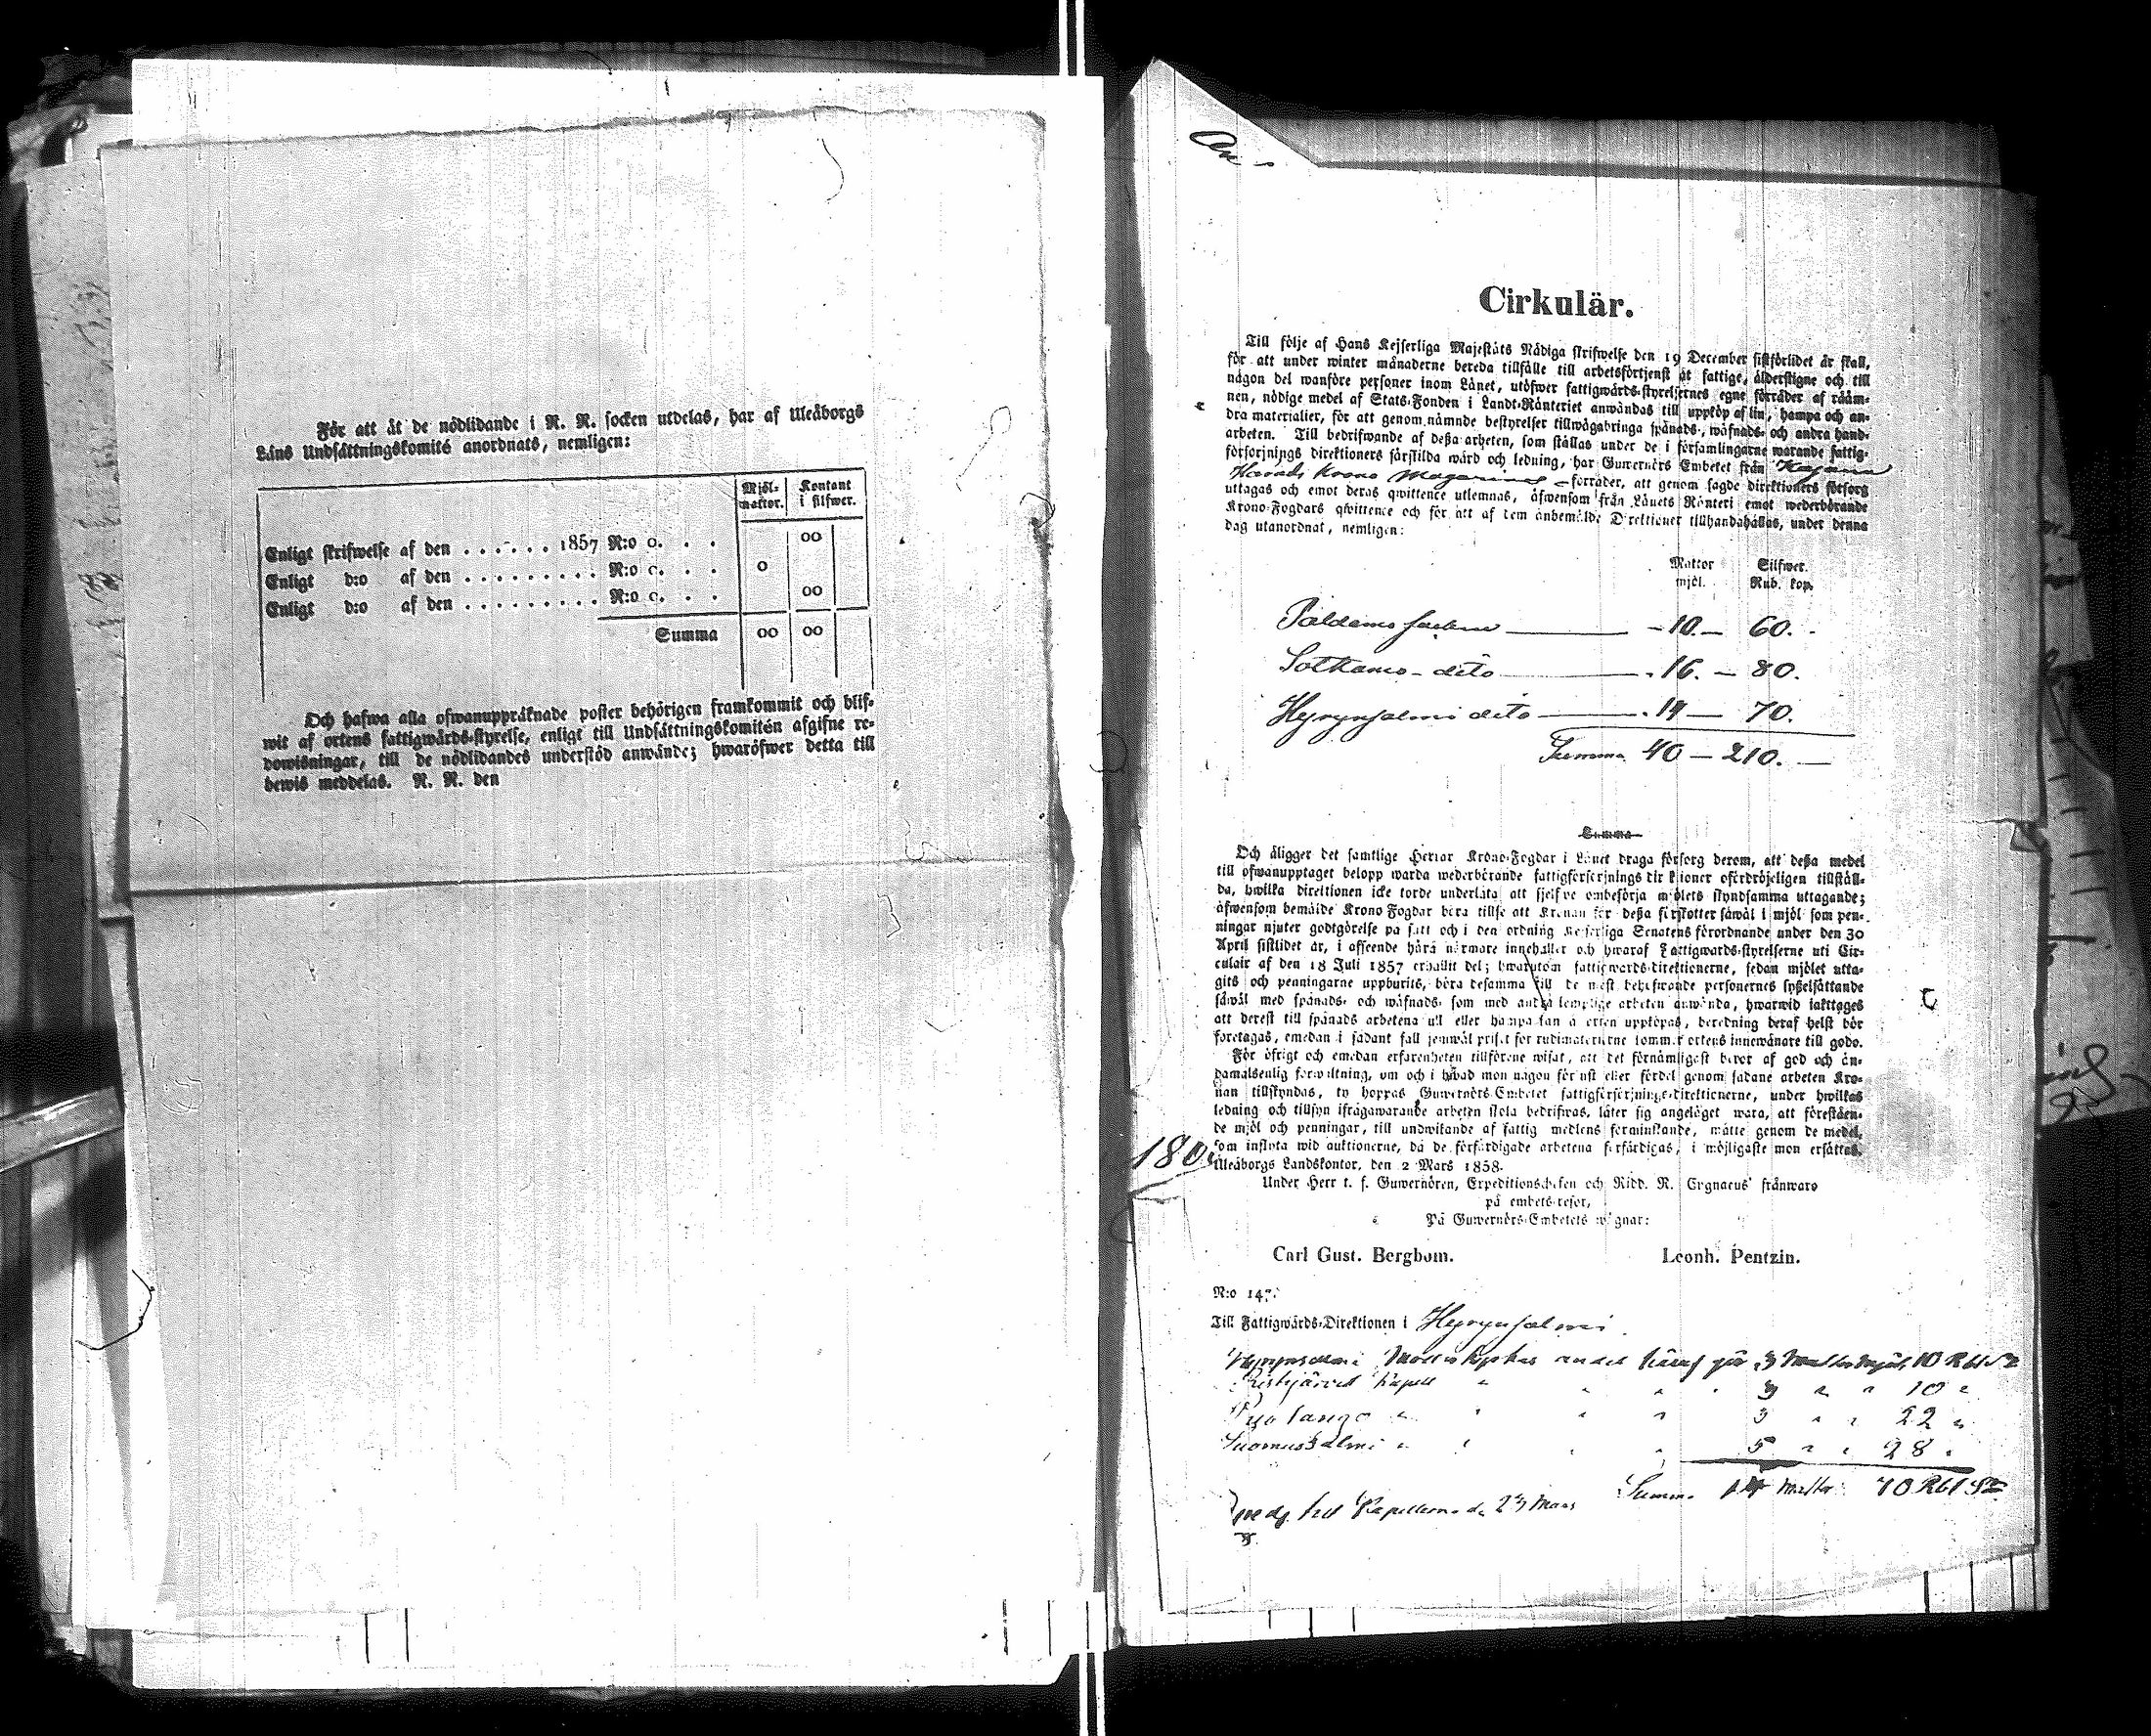 För att åt de nödlidande i N. N. socken utdelas, har af Uleåborgs
Läns Undsättningskomité anordnats, nemligen:
Mjöl- Kontant
mattor. i silfwer.
Enligt skrifwelse af den . . . . . . 1857 N:o o. . . 00
Enligt d:o af den . . . . . . . . . N:o o. . . o
Enligt d:o af den . . . . . . . . . N:o o. . . 00
Summa 00 00
Och hafwa alla ofwanuppräknade poster behörigen framkommit och blif-
wit af ortens fattigwårds-styrelse, enligt till Undsättningskomitén afgifne re-
dowisningar, till de nödlidandes understöd anwände; hwaröfwer detta till
bewis meddelas. N. N. den
Cirkulär.
Till följe af Hans Kejserliga Majestäts Nådiga skrifwelse den 19 December sistförlidet år skall,
för att under winter månaderne bereda tillfälle till arbetsförtjenst åt fattige, ålderstigne och till
någon del wanföre personer inom Länet, utöfwer fattigwårds-styrelsernes egne förråder af rääm-
nen, nödige medel af Stats-Fonden i Landt-Ränteriet anwändas till uppköp af lin, hampa och an-
dra materialier, för att genom nämnde bestyrelser tillwägabringa spånads-, wäfnads- och andra hand-
arbeten. Till bedrifwande af deßa arbeten, som ställas under de i församlingarne warande fattig-
försörjnings direktioners särskilda wård och ledning, har Guwernörs Embetet från Kajana
Härads Krono Magasins förråder, att genom sagde direktioners försorg
uttagas och emot deras qwittence utlemnas, äfwensom från Länets Ränteri emot wederbörande
Krono-Fogdars qwittence och för att af dem anbemälde Direktioner tillhandahållas, under denna
dag utanordnat, nemligen:
Mattor Silfwer.
mjöl. Rub. kop.
Paldamo socken — 10. — 60. -
Sotkamo - dito — 16. — 80.
Hyrynsalmi dito — 14 — 70.
Summa 40 — 210. —
Summa
Och åligger det samtlige Herrar Krono-Fogdar i Länet draga försorg derom, att deßa medel
till ofwanupptaget belopp warda wederbörande fattigförsörjnings direktioner ofördröjeligen tillställ-
da, hwilka direktionen icke torde underlåta att sjelfve ombesörja mjölets skyndsamma uttagande;
äfwensom bemälde Krono Fogdar böra tillse att Kronan för deßa förskotter såwäl i mjöl som pen-
ningar njuter godtgörelse på sätt och i den ordning Kejserliga Senatens förordnande under den 30
April sistlidet år, i afseende härå närmare innehåller och hwaraf Fattigwårds-styrelserne uti Cir-
culair af den 18 Juli 1857 erhållit del; hwarutom fattigwårds-direktionerne, sedan mjölet utta-
gits och penningarne uppburits, böra desamma till de mest behöfwande personernes sysselsättande
såwäl med spånads- och wäfnads- som med andra lemplige arbeten använda, hwarwid iakttages
att derest till spånads arbetena ull eller hampa kan å orten uppköpas, beredning deraf helst bör
företagas, emedan i sådant fall jemwäl priset för rudimaterierne kommer ortens innewånare till godo.
För öfrigt och emedan erfarenheten tillförene wisat, att det förnämligast beror af god och än-
damålsenlig förwaltning, om och i hwad mon någon förlust eller fördel genom sådane arbeten Kro-
nan tillskyndas, ty hoppas Guwernörs-Embetet fattigförsörjnings-direktionerne, under hwilkas
ledning och tillsyn ifrågawarande arbeten skola bedrifwas, låter sig angeläget wara, att föreståen-
de mjöl och penningar, till undwikande af fattig medlens förminskande, måtte genom de medel,
som inflyta wid auktionerne, då de förfärdigade arbetena försäljas, i möjligaste mon ersättas.
Uleåborgs Landskontor, den 2 Mars 1858.
Under Herr t. f. Guwernören, Expeditionschefen och Ridd. R. Cygnaeus' frånwaro
på embets-resor,
På Guwernörs-Embetets wägnar:
Carl Gust. Bergbom. Leonh. Pentzin.
N:o 147.
Till Fattigwårds-Direktionen i Hyrynsalmi
Hyrynsalmi Moderkyrkas andel häraf gör 3 Mattor mjöl 10 Rbl Sr
Ristijärvi Kapell " " " 3 " " 10 "
Puolango " " " " 3 " " 22 "
Suomussalmi " " " " 5 " " 28 "
Summa 14 Mattor 70 Rbl Sr
till Kapellerne d. 23 Mars